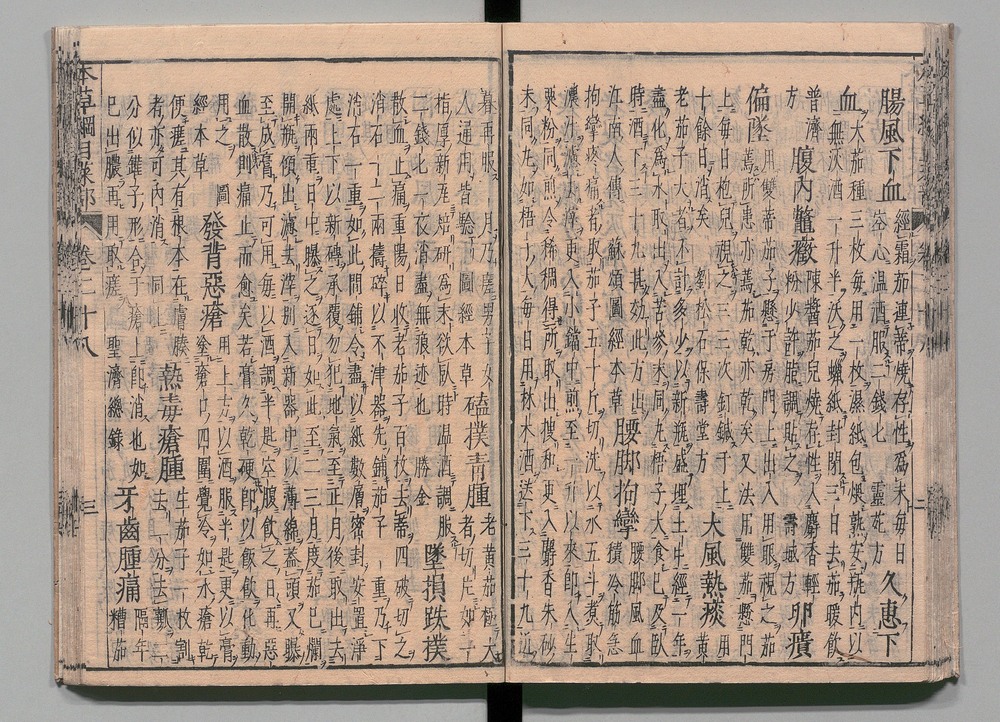 腸風下血 經霜茄連蔕燒存性爲末每日
空心溫酒服二錢匕 靈苑方 久患下
血 大茄種三枚每用一枚濕紙包煨熟安瓶內以
無灰酒一升半沃之蠟紙封閉三日去茄暖飲
普濟方 腹內鼈癥 陳醬茄兒燒存性入麝香輕
粉少許脂調貼之 壽域方 卵㿉
偏墜 用雙蔕茄子懸于房門上出入用眼視之茄
蔫所患亦蔫茄乾亦乾矣又法用雙茄懸門
上每日抱兒視之二三次釘鍼于上
十餘日消矣 劉松石保壽堂方 大風熱痰 用黃
老茄子大者不計多少以新瓶盛埋土中經一年
盡化爲水取出入苦參末同丸梧子大食已及臥
時酒下三十丸甚效此方出
江南人傳 蘇頌圖經本草 腰脚拘攣 腰脚風血積冷筋急
拘攣疼痛者取茄子五十斤切洗以水五斗煑取
濃汁濾去滓更入小鐺中煎至一升以來卽入生
粟粉同煎令稀稠得所取出搜和更入麝香朱砂
末同丸如梧子大每日用秫米酒送下三十丸近
暮再服一月乃瘥男子女
人通用皆驗 圖經本草 磕撲青腫 老黃茄極大
者切片如一
指厚新瓦焙研爲末欲臥時溫酒調服
二錢匕一夜消盡無痕迹也 勝金 墜損跌撲
散血止痛重陽日收老茄子百枚去蔕四破切之
消石十二兩擣碎以不津器先鋪茄子一重乃下
消石一重如此間鋪令盡以紙數層密封安置淨
處上下以新磚承覆勿犯地氣至正月後取出去
紙兩重日中曝之逐日如此至二三月度茄已爛
開瓶傾出濾去滓別入新器中以薄綿蓋頭又曝
至成膏乃可用每以酒調半匙空腹飲之日再惡
血散則痛止而愈矣若膏久乾硬卽以飯飲化動
用之 圖經本草 發背惡瘡 用上方以酒服半匙更以膏
塗瘡口四圍覺冷如冰瘡乾
便瘥其有根本在膚腠
者亦可內消 同上 熱毒瘡腫 生茄子一枚割
去二分去瓤二
分似罐子形合于瘡上卽消也如
已出膿再用取瘥 聖濟總錄 牙齒腫痛 隔年
糟茄
本草綱目菜部 卷二十八 三